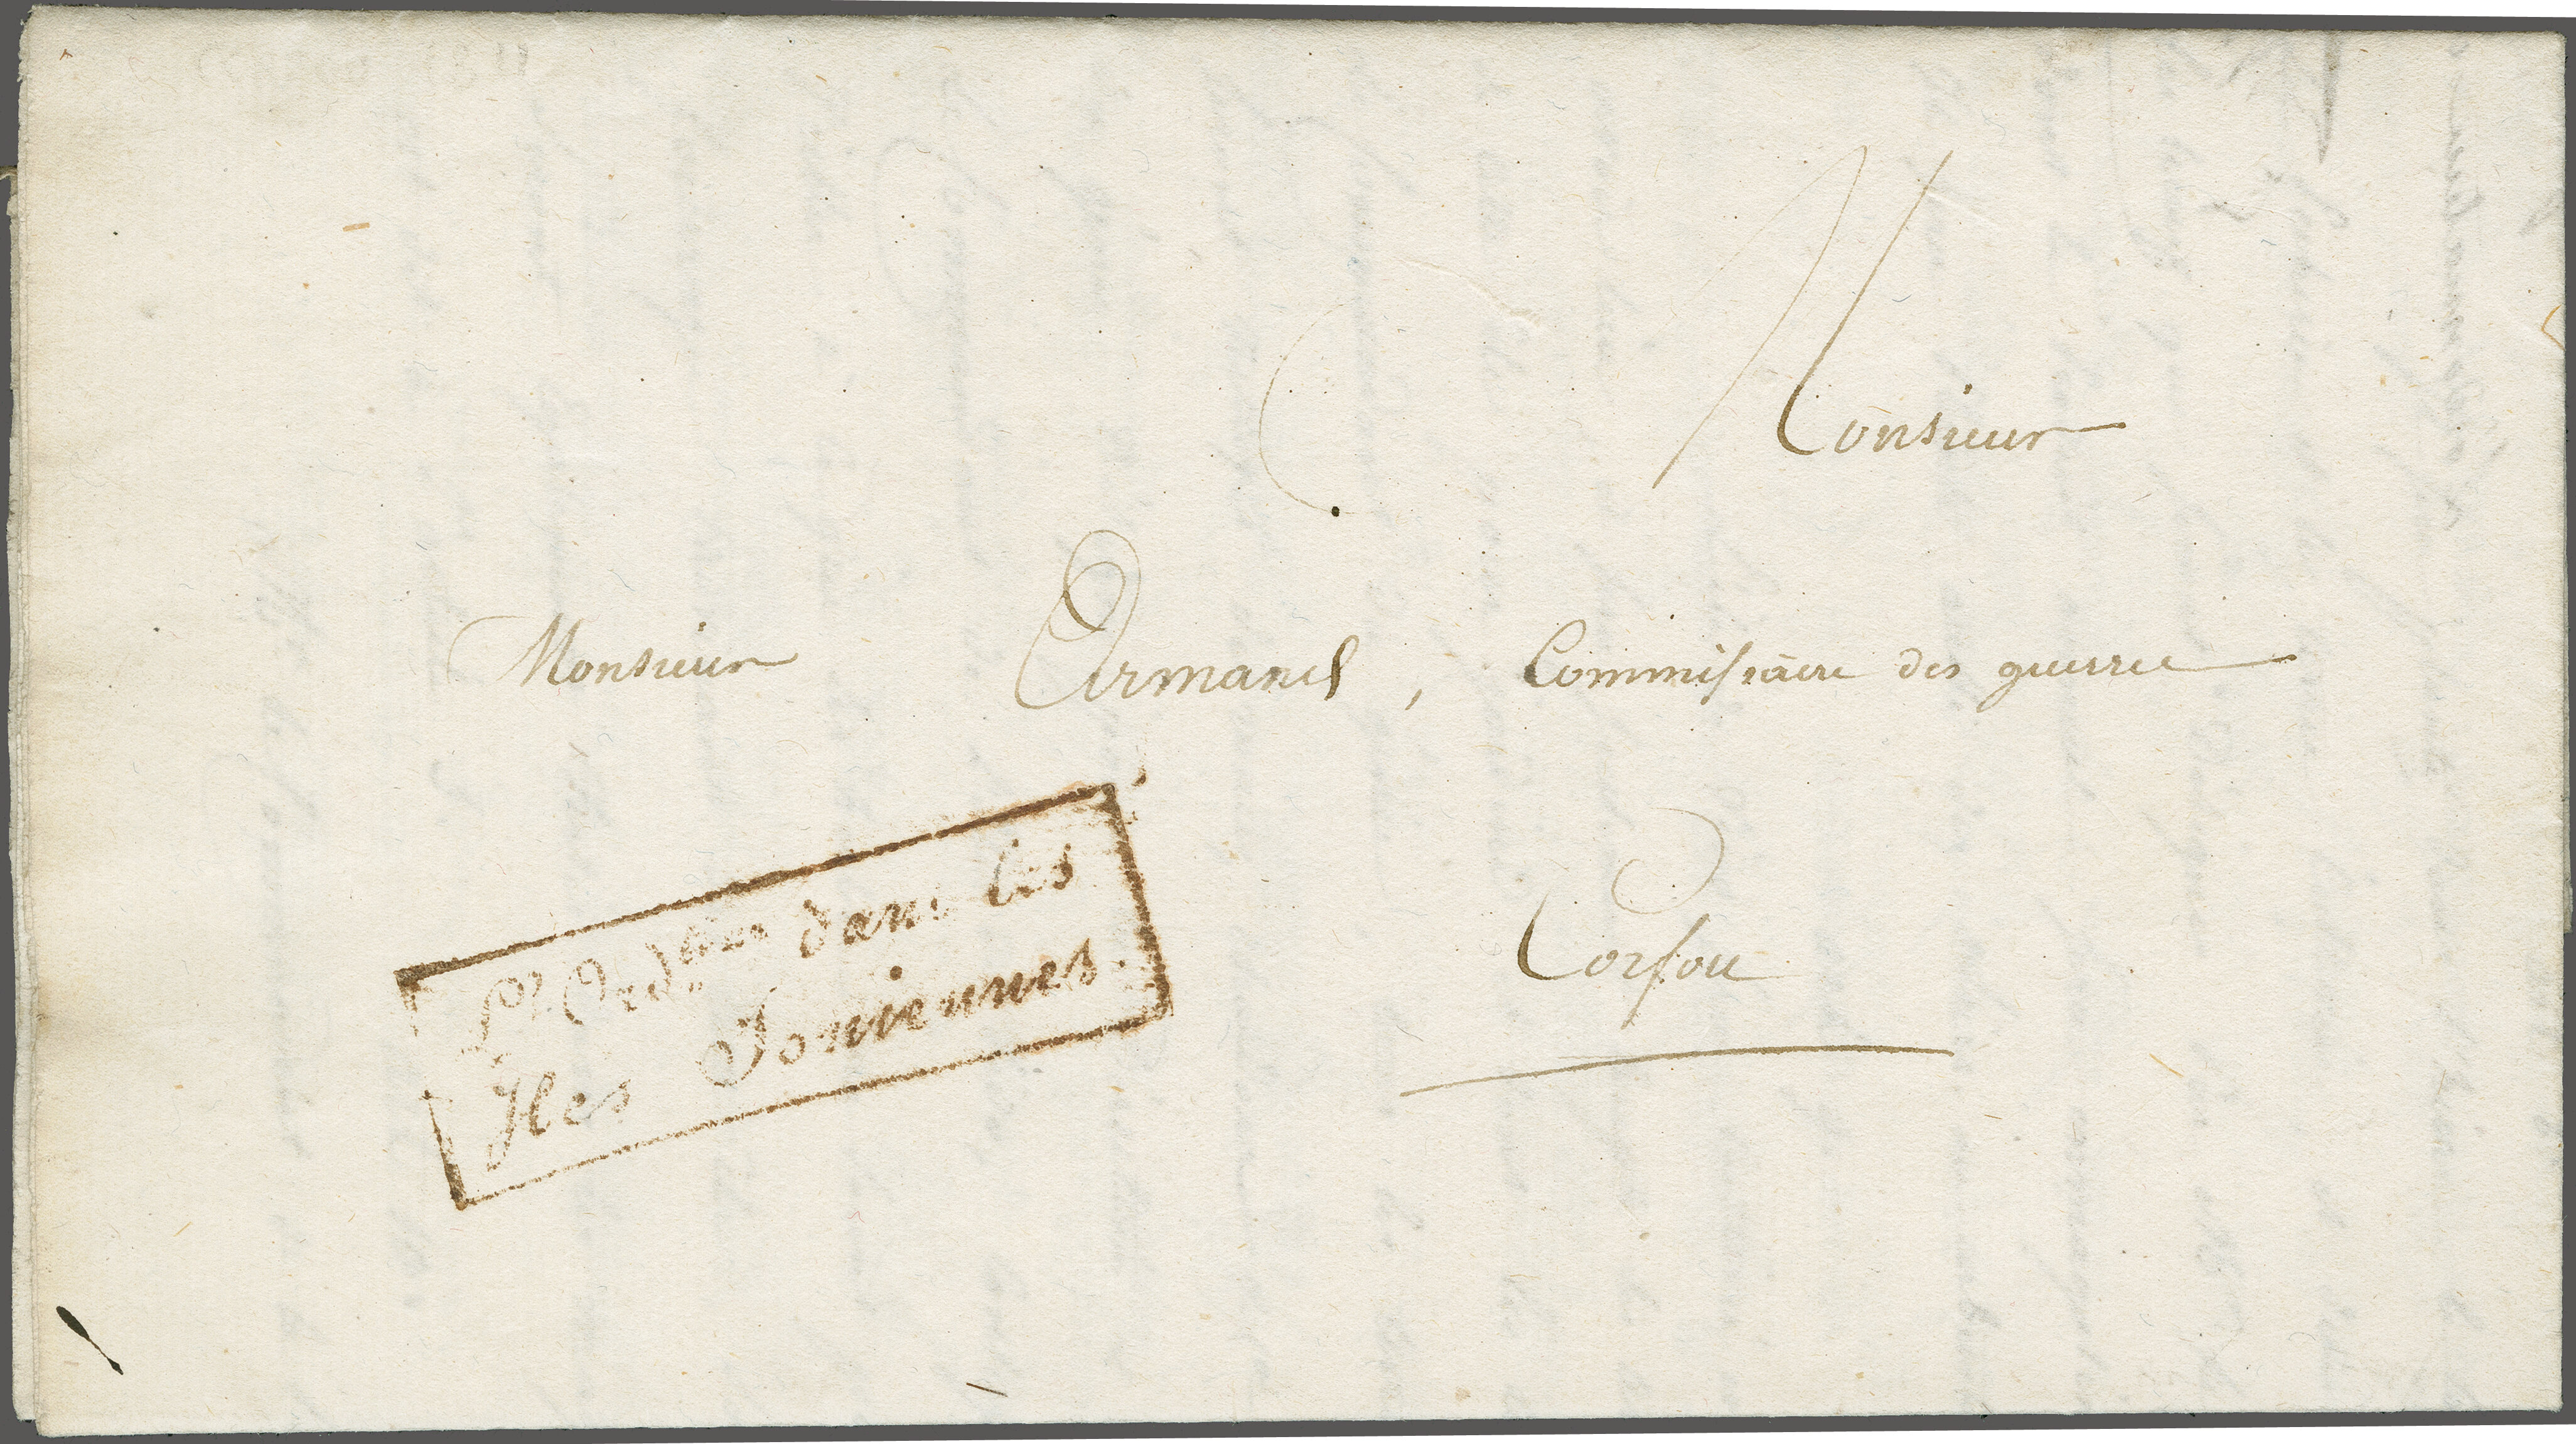 Monsieur
Monsieur Armand, Commissaire des guerres
Corfou
dans les
Iles Ioniennes